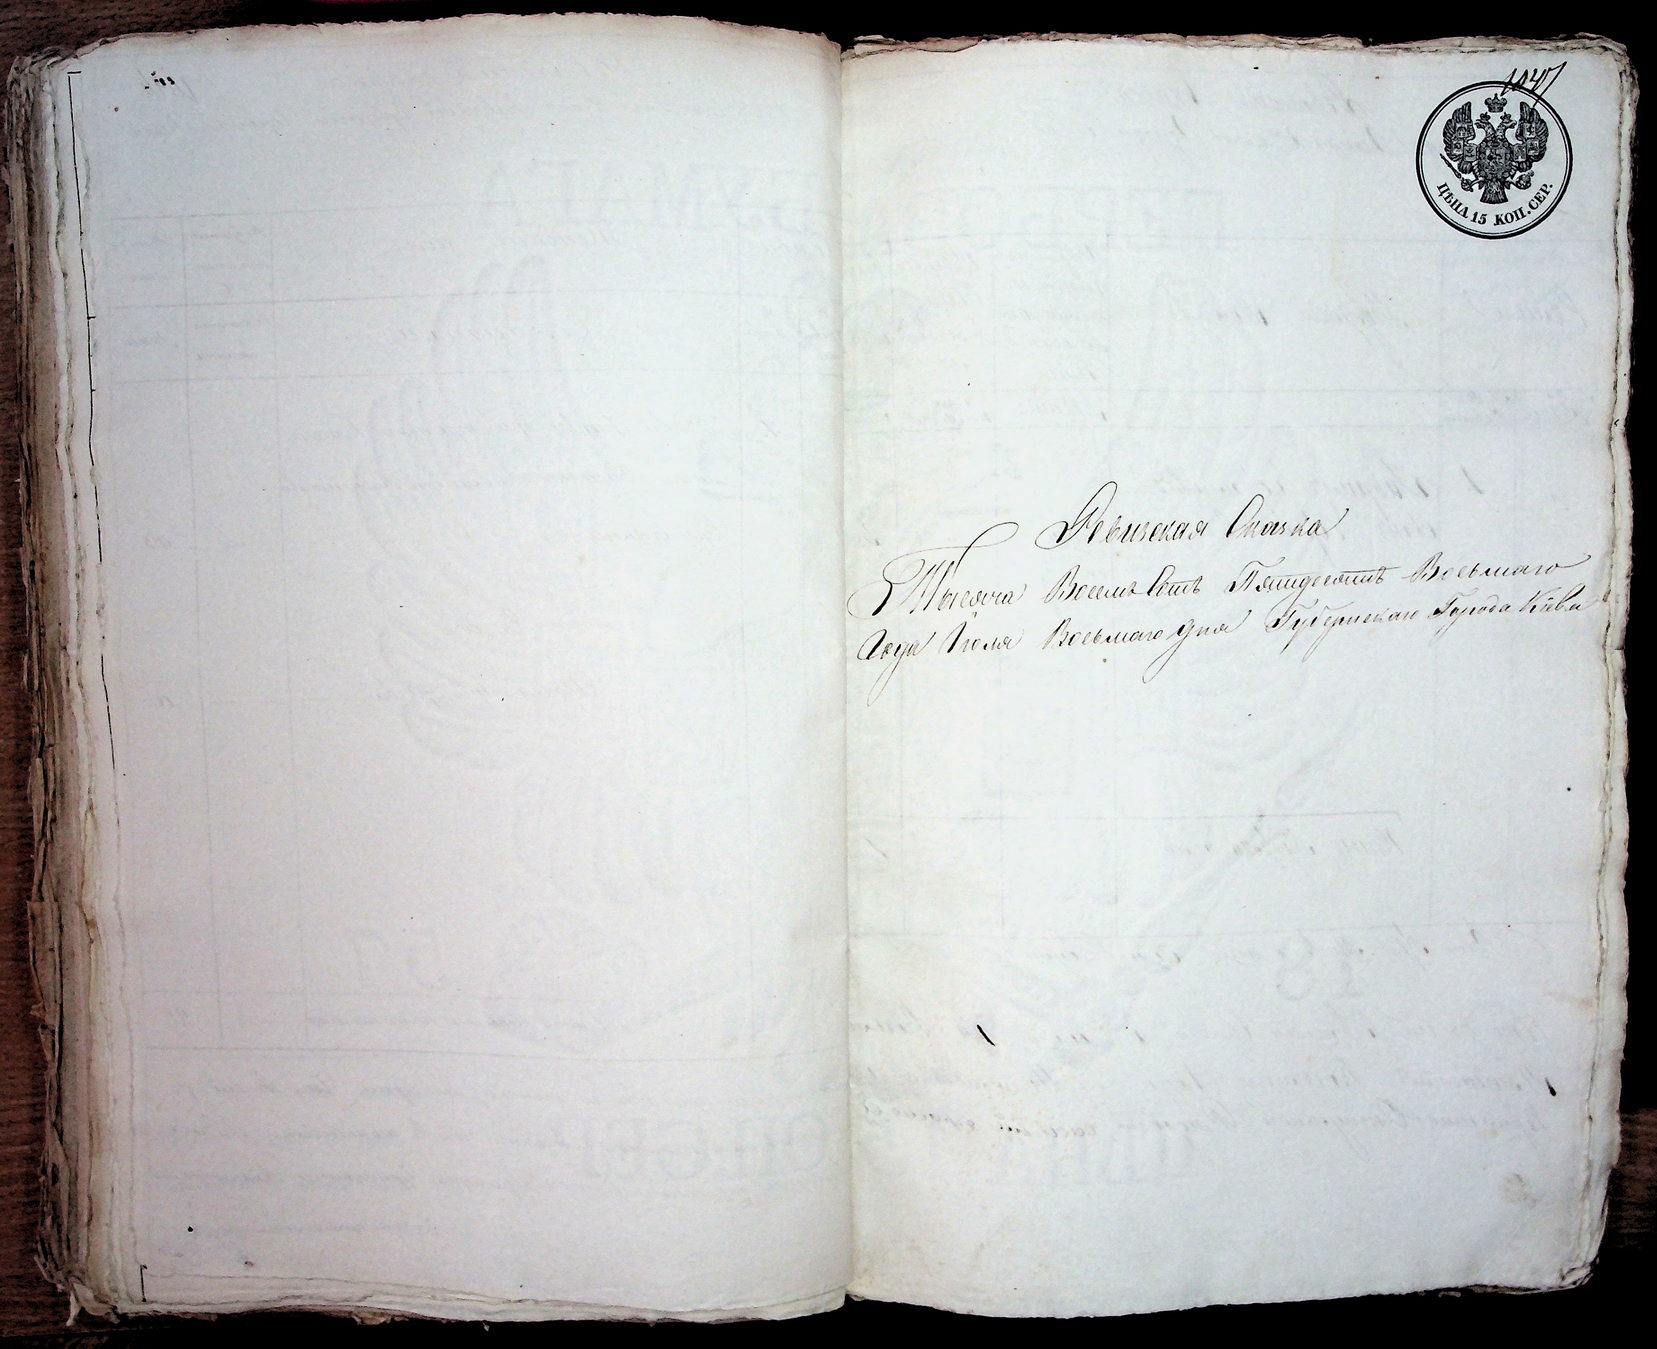 1047
ЦѢНА 15 КОП. СЕР.
Ревизская Сказка
Тысяча Восемь Сотъ Пятдесятъ Восьмаго
Года Іюля Восьмаго дня Губернскаго Города Кіева